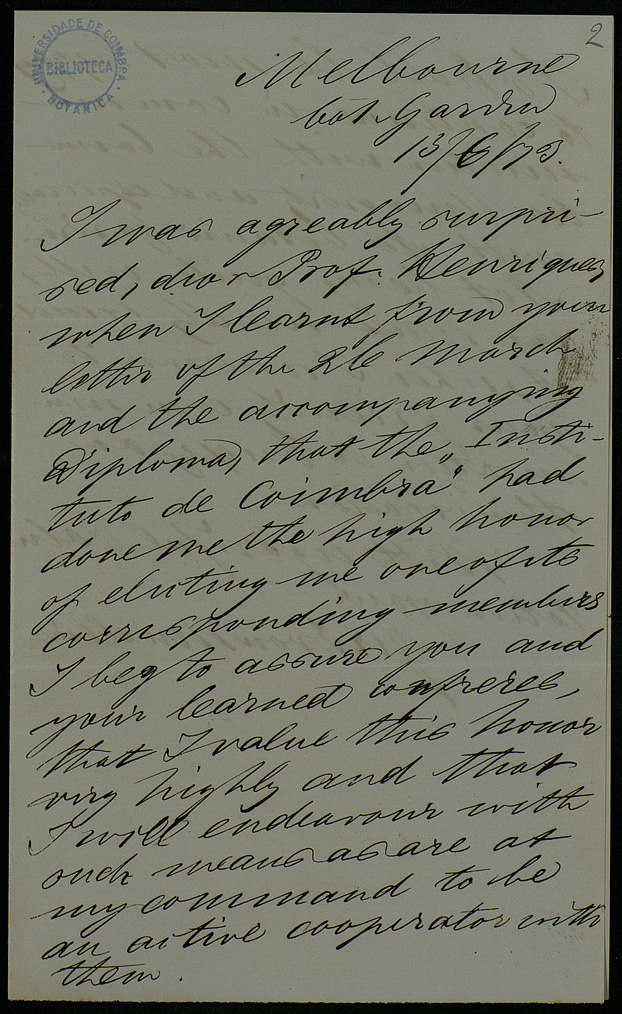 2
UNIVERSIDADE DE COIMBRA
BIBLIOTECA
BOTANICA
Melbourne
bot. Garden
13/6/73.
I was agreably surpri-
sed, dear Prof. Henriques,
when I learnt from your
letter of the 26 March
and the accompanying
Diploma, that the „Insti-
tuto de Coimbra“ had
done me the high honor
of electing me one of its
corresponding members.
I beg to assure you and
your learned confreres,
that I value this honor
very highly and that
I will endeavour with
such means as are at
my command to be
an active cooperator with
them.